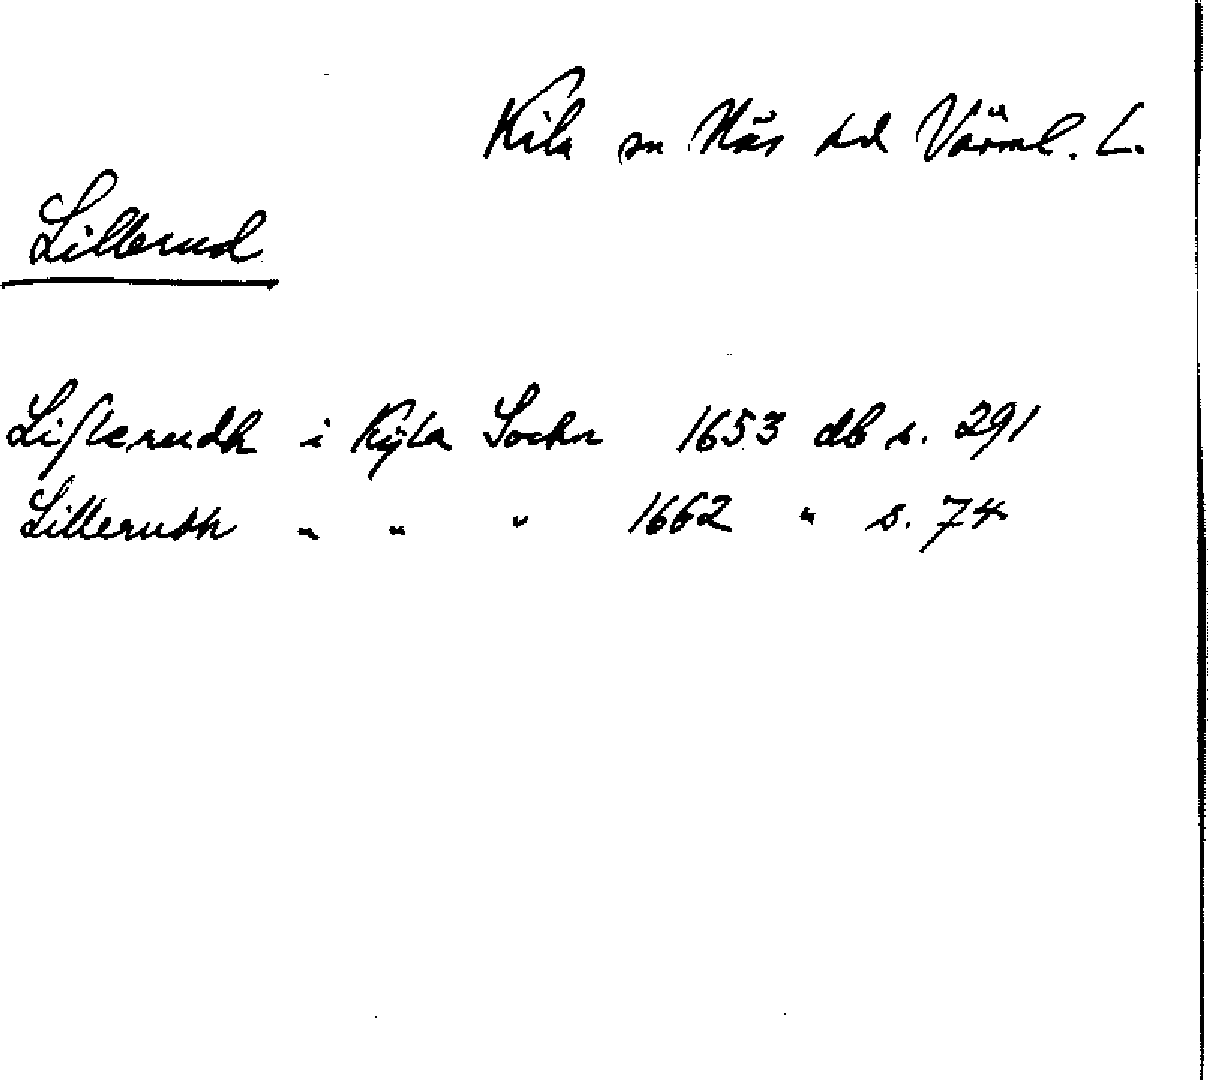 Kila sn Näs hd Värml. L.
Lillerud
Lißlerudh i Kÿla Sockn 1653 db s. 291
Lilleruth " " " 1662 " s. 74